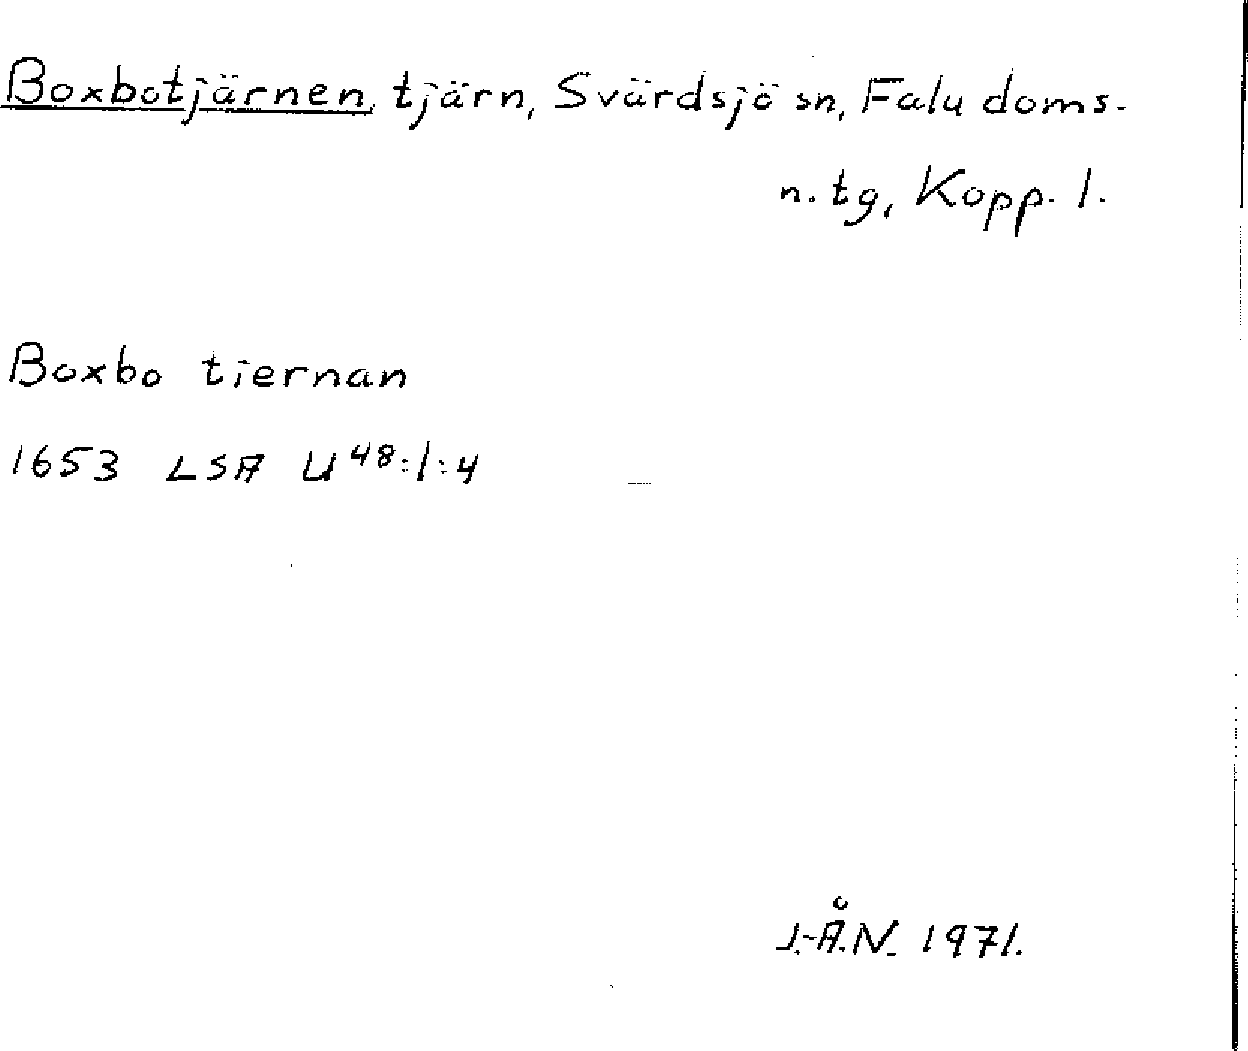 Boxbotjärnen, tjärn, Svärdsjö sn, Falu doms.
n. tg, Kopp. l.
Boxbo tiernan
1653 LSA U 48:1:4
J.-Å.N. 1971.